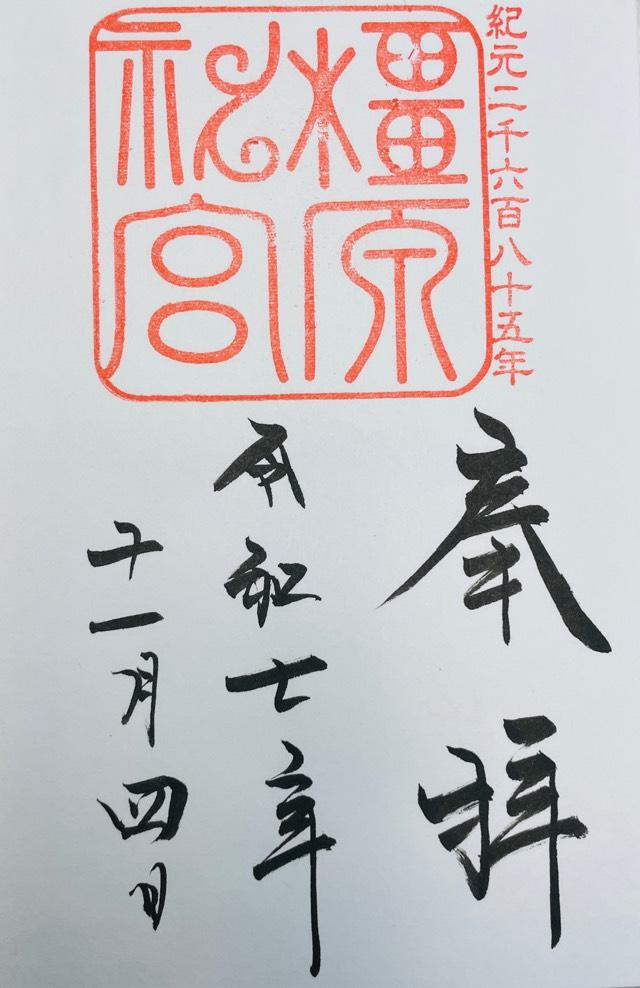 紀元二千六百八十五年
橿原神宮
奉拝
令和七年
十一月四日